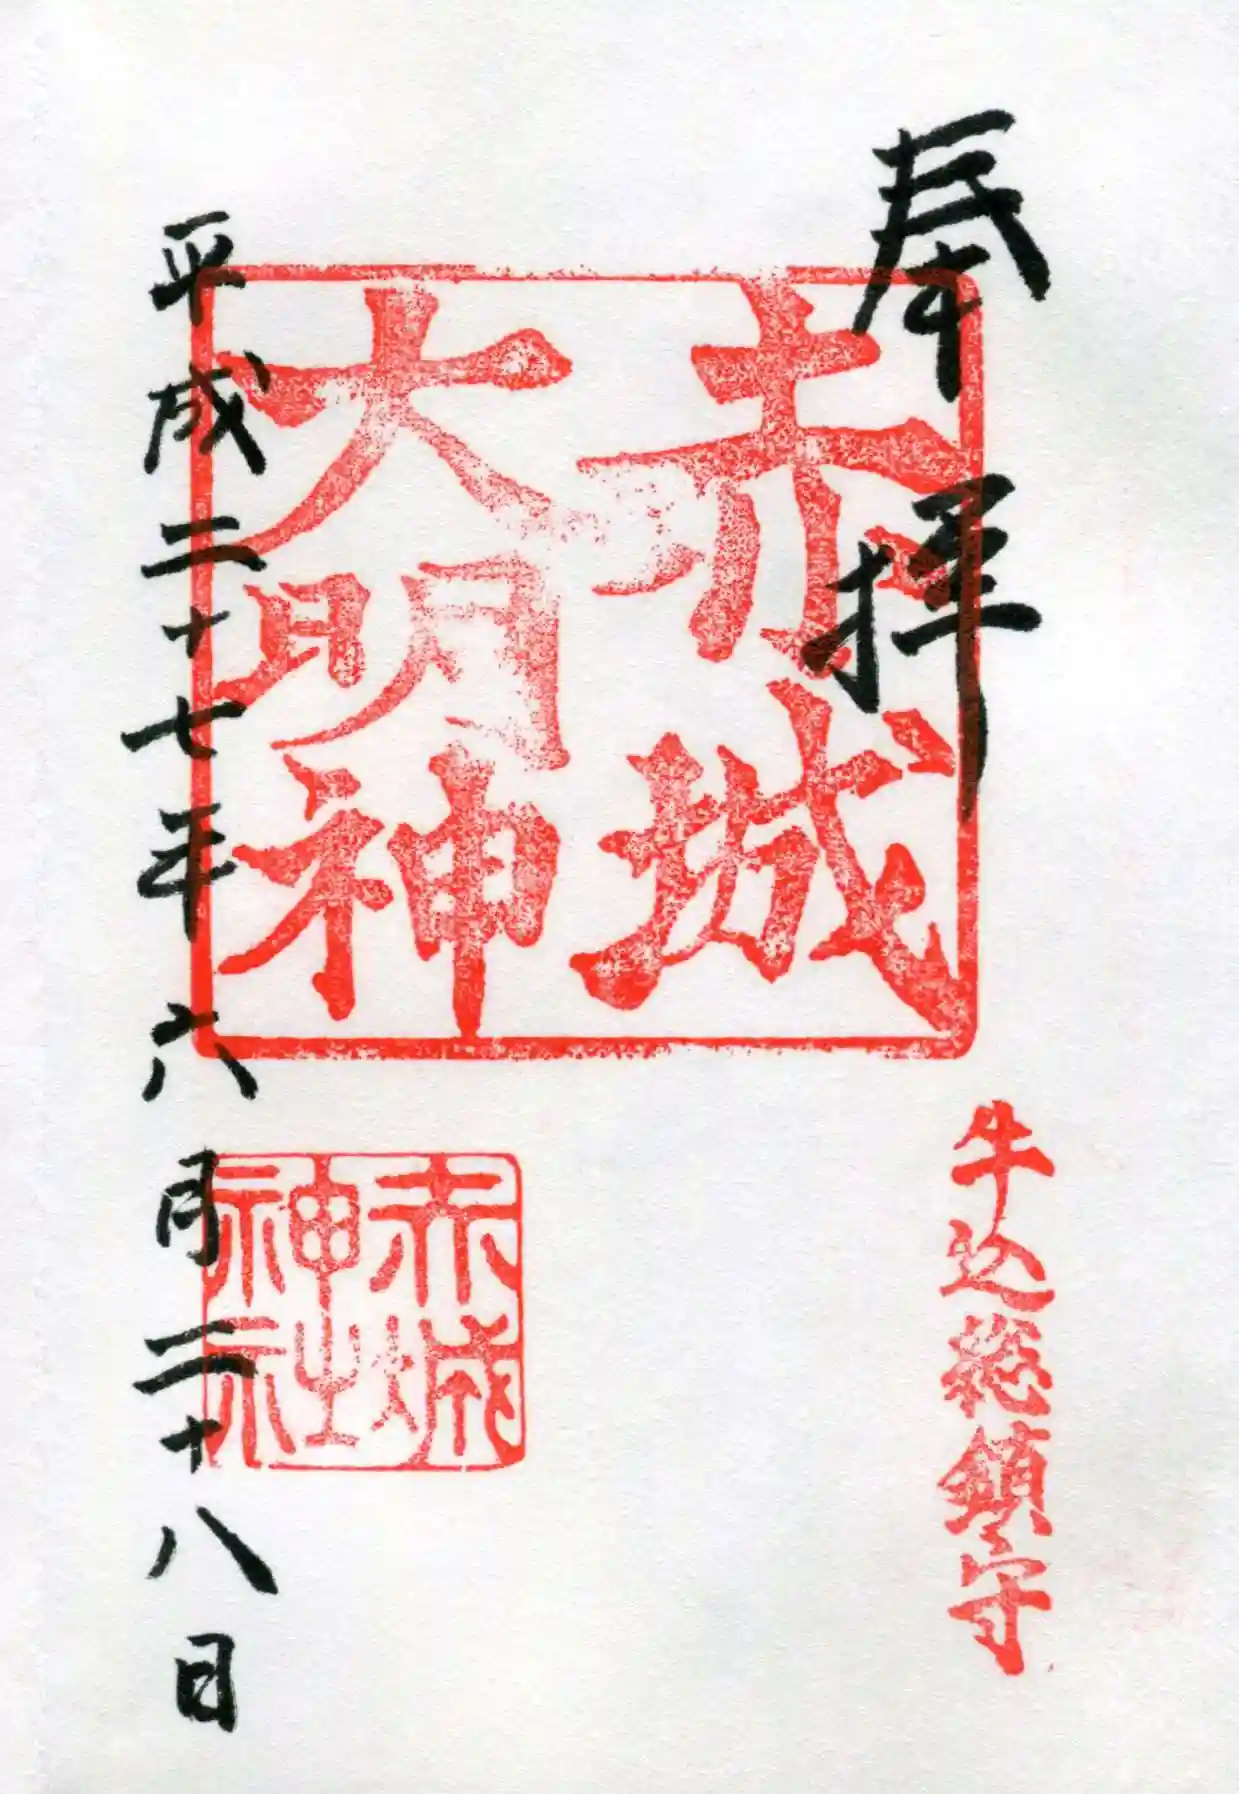 奉拝
赤城
大明神
牛込総鎮守
赤城
神社
平成二十七年六月二十八日